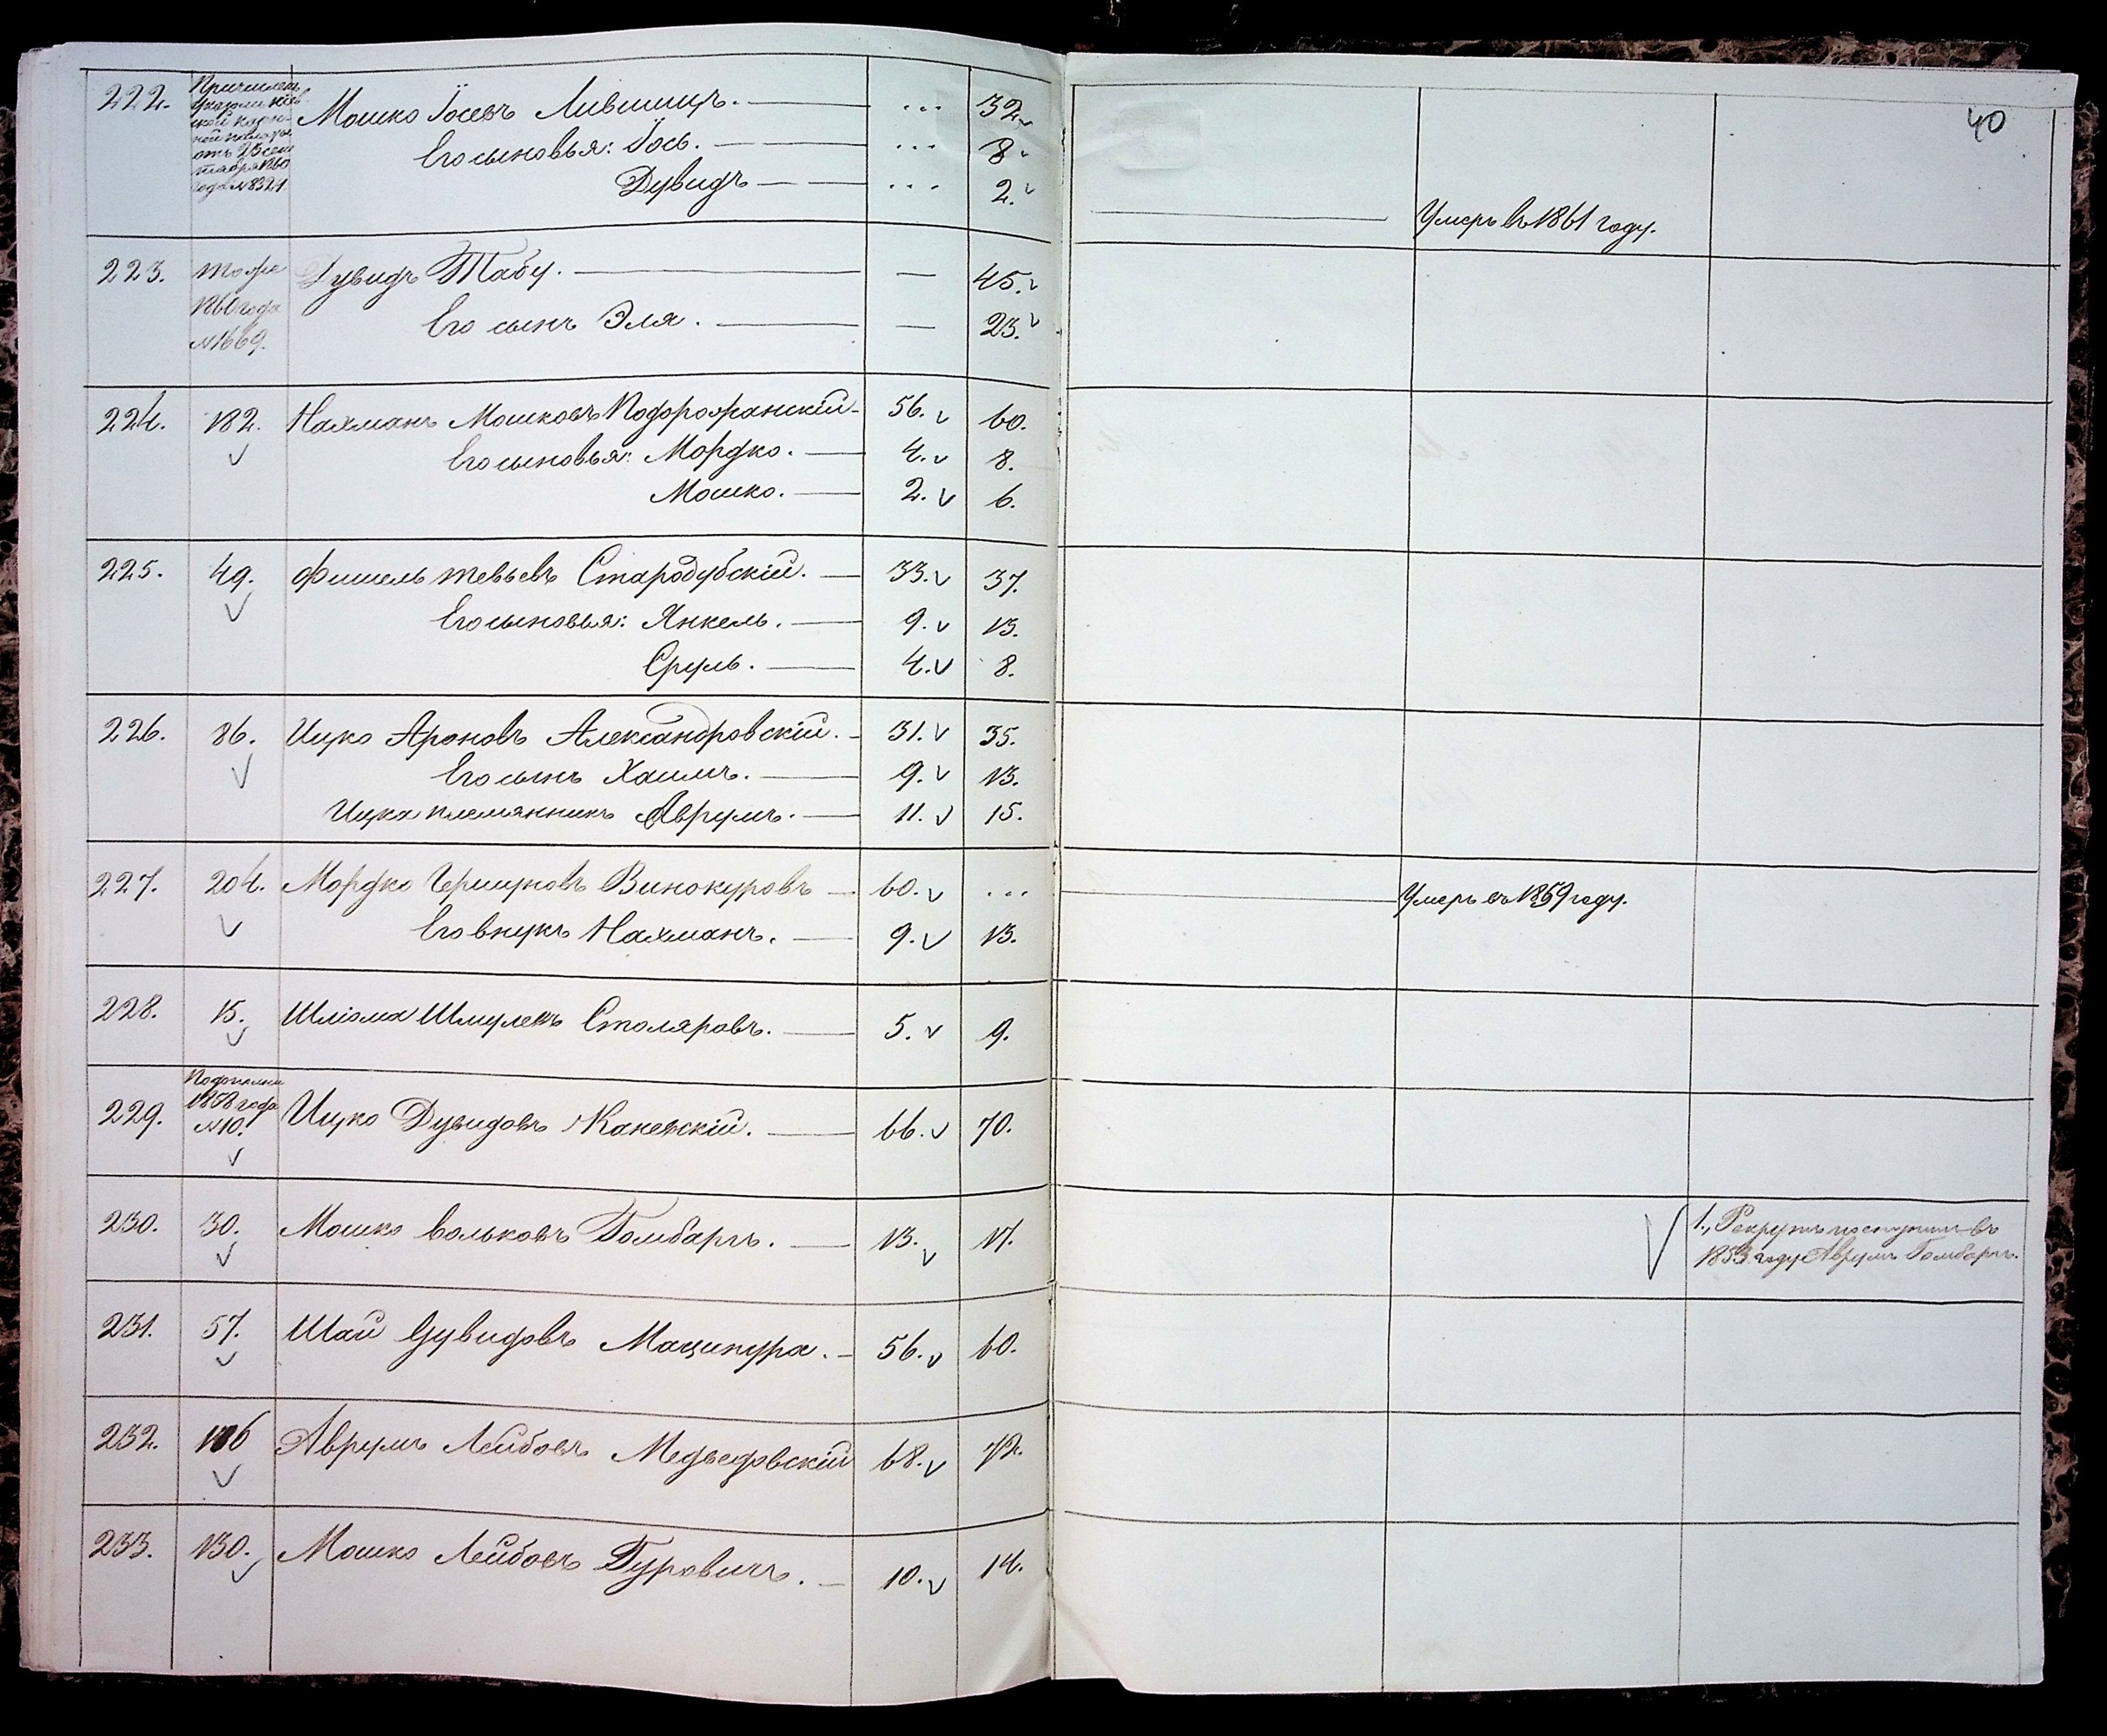 40
222. Причислен
указом Кіев
ской казен-
ной палаты
отъ 25 сен
тября 1860
года №8321.
Мошко Іосевъ Лившицъ. ... 32.
Его сыновья: Іось. ... 8.
Дувидъ ... 2. Умеръ въ 1861 году.
223. тоже Дувидъ Табу. — 45.
1860 года Его сынъ Эля. — 23.
№1669.
224. 182. Нахманъ Мошковъ Подорожанскій 56. 60.
Его сыновья: Мордко. 4. 8.
Мошко. 2. 6.
225. 49. Фишель Тевьевъ Стародубскій. 33. 37.
Его сыновья: Янкель. 9. 13.
Сруль. 4. 8.
226. 86. Ицко Ароновъ Александровскій. 31. 35.
Его сынъ Хаимъ. 9. 13.
Ицка племянникъ Аврумъ. 11. 15.
227. 204. Мордко Гершковъ Винокуровъ 60. ... Умеръ въ 1859 году.
Его внукъ Нахманъ. 9. 13.
228. 15. Шліома Шмулевъ Столяровъ. 5. 9.
1858 года
229. №10. Ицко Дувидовъ Каневскій. 66. 70.
230. 30. Мошко Вольковъ Гомбаргъ. 13. 17. 1., Рекрутъ поступил въ
1853 году Аврумъ Гомбаргъ.
231. 57. Шай Дувидовъ Маципура. 56. 60.
232. Аврумъ Лейбовъ Медведовскій 68. 72.
233. 130. Мошко Лейбовъ Гуровичъ. 10. 14.